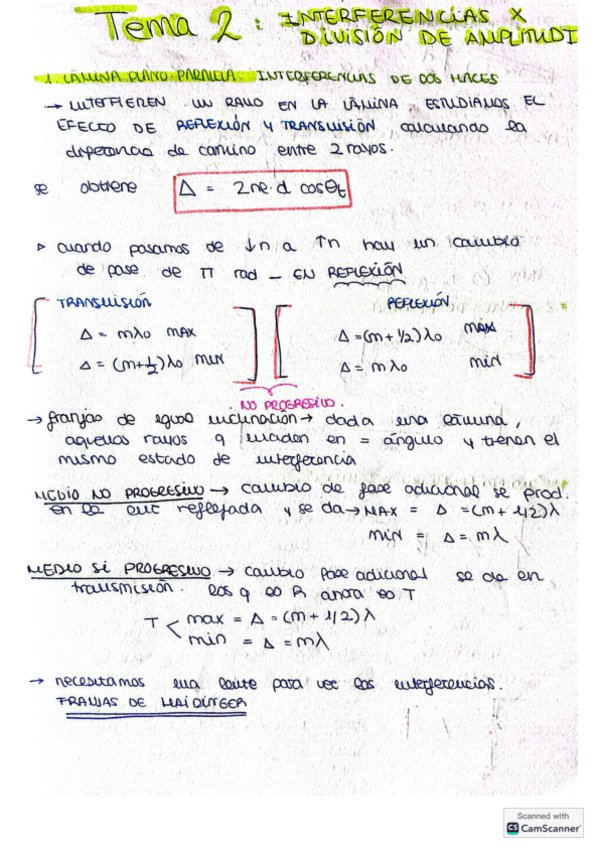 Tema 2: INTERFERENCIAS X
DIVISIÓN DE AMPLITUD
1. LÁMINA PLANO-PARALELA: INTERFERENCIAS DE DOS HACES
→ INTERFIEREN UN RAYO EN LA LÁMINA, ESTUDIAMOS EL
EFECTO DE REFLEXIÓN Y TRANSMISIÓN calculando la
diferencia de camino entre 2 rayos.
se obtiene Δ = 2ne·d cosθt
▷ cuando pasamos de ↓n a ↑n hay un cambio
de fase de π rad — EN REFLEXIÓN
TRANSMISIÓN
Δ = mλo MAX
Δ = (m+1/2)λo MIN
REFLEXIÓN
Δ = (m+1/2)λo MAX
Δ = mλo min
NO PROGRESIVO.
→ franjas de igual inclinación → dada una lámina,
aquellos rayos q inciden en = ángulo y tienen el
mismo estado de interferencia
MEDIO NO PROGRESIVO → cambio de fase adicional se prod.
en la luz reflejada y se da → MAX = Δ = (m + 1/2)λ
min = Δ = mλ
MEDIO SÍ PROGRESIVO → cambio fase adicional se da en
transmisión. los q es R ahora es T
T < max = Δ = (m + 1/2)λ
min = Δ = mλ
→ necesitamos una lente para ver las interferencias.
FRANJAS DE HAIDINGER
Scanned with
CS CamScanner